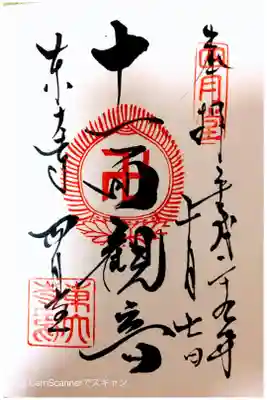 奉拝 平成二十年
十月
十一面觀音
東大寺 四月堂
CamScannerでスキャン